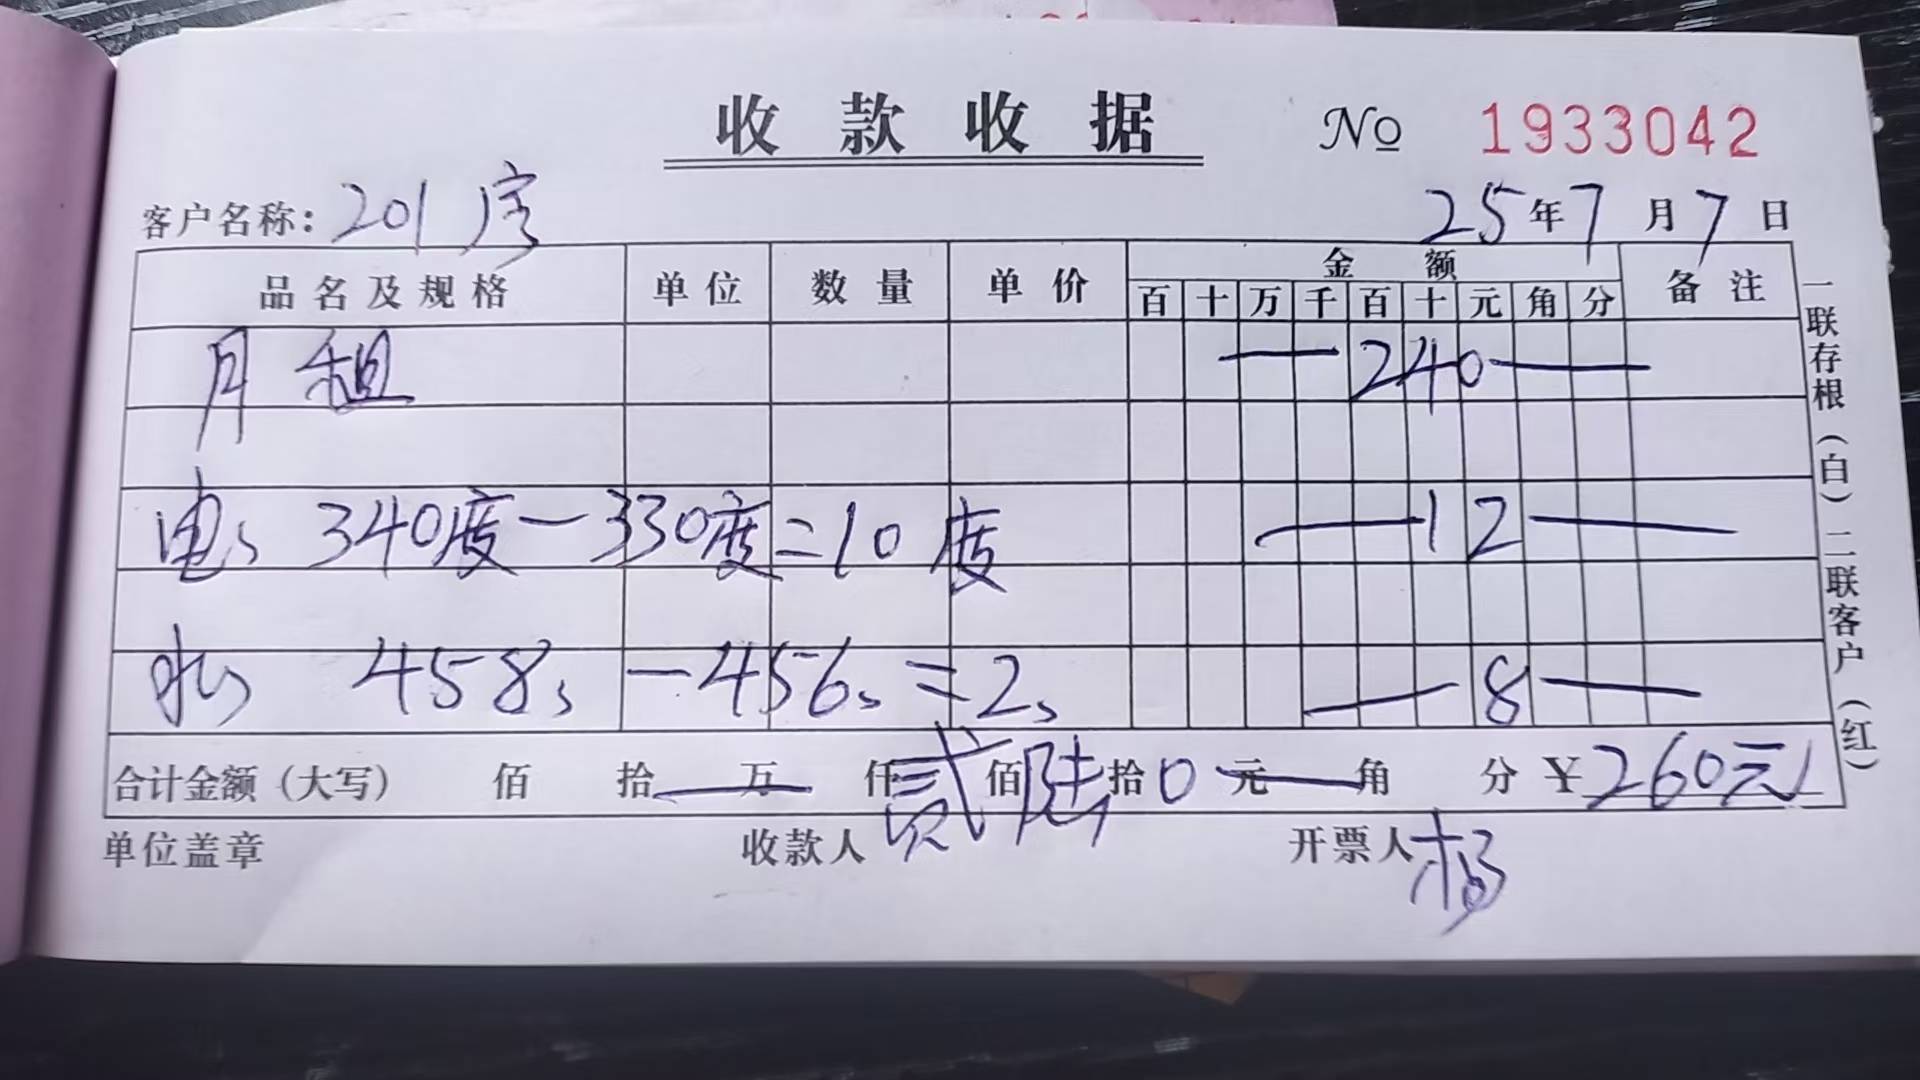 收款收据 № 1933042
客户名称：201房 25年7月7日
品名及规格 单位 数量 单价 金额 备注
百 十 万 千 百 十 元 角 分
月租 240
电 340度－330度＝10度 12
水 458 －456 ＝2 8
合计金额（大写） 佰 拾 万 仟贰佰陆拾0元 角 分 ¥260元
单位盖章 收款人 开票人 杨
一联存根（白）二联客户（红）